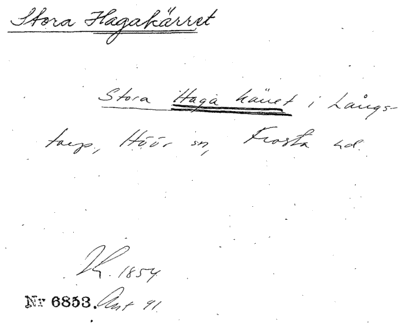 Stora Hagakärret
Stora Haga käret i Långs-
torp, Höör sn, Frosta hd.
1854
Nr 6853. Ant 91.